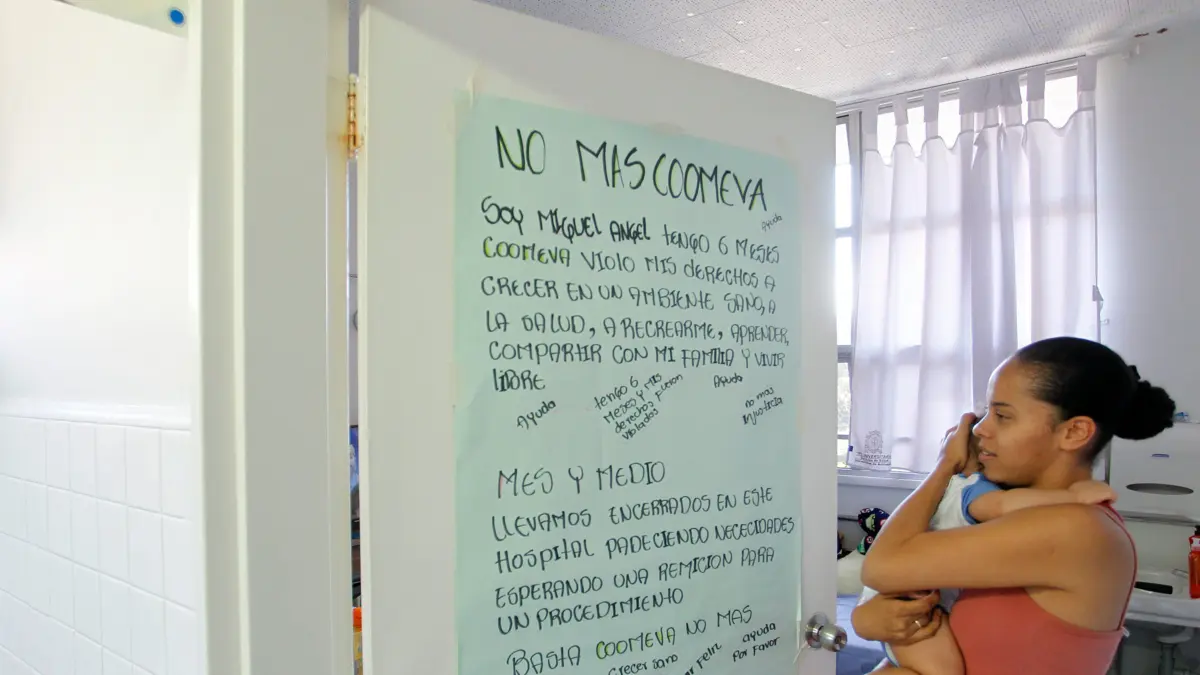 NO MAS COOMEVA
Ayuda
SOY MIGUEL ANGEL TENGO 6 MESES
COOMEVA VIOLO MIS DERECHOS A
CRECER EN UN AMBIENTE SANO, A
LA SALUD, A RECREARME, APRENDER,
COMPARTIR CON MI FAMILIA Y VIVIR
LIBRE
Ayuda
TENGO 6
MESES Y MIS
derechos fueron
violados
Ayuda
no mas
injusticia
MES Y MEDIO
LLEVAMOS ENCERRADOS EN ESTE
HOSPITAL PADECIENDO NECECIDADES
ESPERANDO UNA REMICION PARA
UN PROCEDIMIENTO
BASTA COOMEVA NO MAS
crecer sano
ayuda
Por Favor